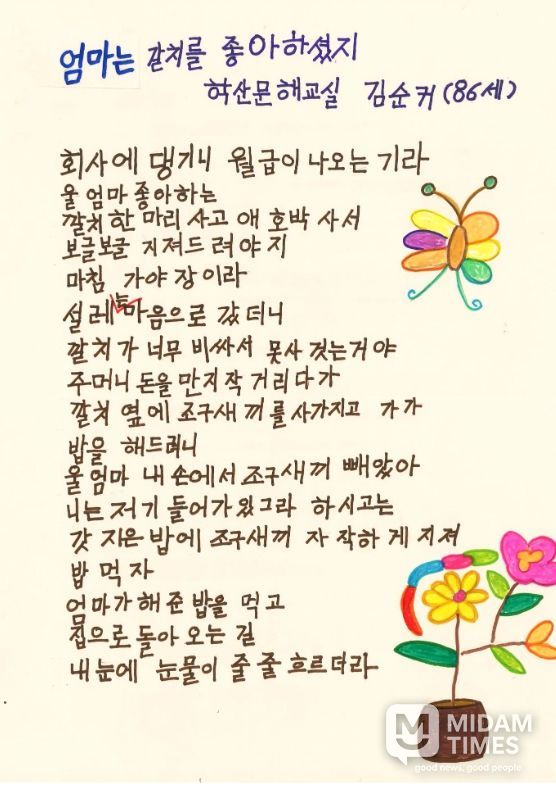 엄마는 갈치를 좋아하셨지
학산문해교실 김순커(86세)
회사에 댕기니 월급이 나오는 기라
울 엄마 좋아하는
깔치 한 마리 사고 애 호박 사서
보글보글 지져드려야지
마침 가야장이라
설레는 마음으로 갔더니
깔치가 너무 비싸서 못사 것는거야
주머니 돈을 만지작 거리다가
깔치 옆에 조구새끼를 사가지고 가가
밥을 해드려니
울엄마 내 손에서 조구새끼 빼앗아
니는 저기 들어가 있그라 하시고는
갓 지은 밥에 조구새끼 자작하게 지져
밥 먹자
엄마가 해준 밥을 먹고
집으로 돌아 오는 길
내 눈에 눈물이 줄줄 흐르더라
MIDAM
TIMES
good news, good people